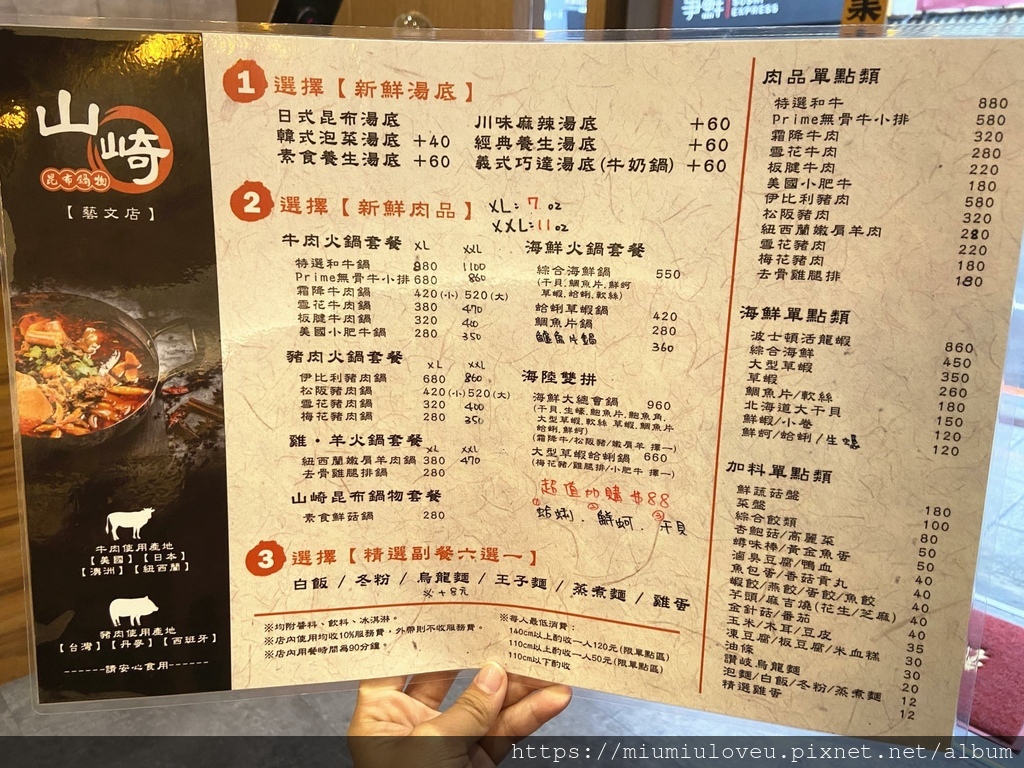 山崎
昆布鍋物
【藝文店】
牛肉使用產地
【美國】【日本】
【澳洲】【紐西蘭】
豬肉使用產地
【台灣】【丹麥】【西班牙】
------請安心食用------
1 選擇【新鮮湯底】
日式昆布湯底
韓式泡菜湯底 +40
素食養生湯底 +60
川味麻辣湯底 +60
經典養生湯底 +60
義式巧達湯底(牛奶鍋) +60
2 選擇【新鮮肉品】
XL: 7 oz
XXL: 11 oz
牛肉火鍋套餐 XL XXL
特選和牛鍋 880 1100
Prime無骨牛小排 680 860
霜降牛肉鍋 420(小) 520(大)
雪花牛肉鍋 380 470
板腱牛肉鍋 320 410
美國小肥牛鍋 280 350
豬肉火鍋套餐 XL XXL
伊比利豬肉鍋 680 860
松阪豬肉鍋 420(小) 520(大)
雪花豬肉鍋 320 400
梅花豬肉鍋 280 350
雞·羊火鍋套餐 XL XXL
紐西蘭嫩肩羊肉鍋 380 470
去骨雞腿排鍋 280
山崎昆布鍋物套餐
素食鮮菇鍋 280
海鮮火鍋套餐
綜合海鮮鍋 550
(干貝.鯛魚片.鮮蚵
草蝦.蛤蜊.軟絲)
蛤蜊草蝦鍋 420
鯛魚片鍋 280
鱸魚片鍋 360
海陸雙拼
海鮮大總會鍋 960
(干貝.生蠔.鮑魚片.鮑魚角.
大型草蝦.軟絲 草蝦.鯛魚片
蛤蜊.鮮蚵)
(霜降牛/松阪豬/嫩肩羊 擇一)
大型草蝦蛤蜊鍋 660
(梅花豬/雞腿排/小肥牛 擇一)
超值加購 $88
①蛤蜊. ②鮮蚵. ③干貝
3 選擇【精選副餐六選一】
白飯 / 冬粉 / 烏龍麵 / 王子麵 / 蒸煮麵 / 雞蛋
※均附醬料、飲料、冰淇淋。
※店內使用均收10%服務費,外帶則不收服務費。
※店內用餐時間爲90分鐘。
※每人最低消費:
140cm以上酌收一人120元(限單點區)
110cm以上酌收一人50元(限單點區)
110cm以下酌收
肉品單點類
特選和牛 880
Prime無骨牛小排 580
霜降牛肉 320
雪花牛肉 280
板腱牛肉 220
美國小肥牛 180
伊比利豬肉 580
松阪豬肉 320
紐西蘭嫩肩羊肉 280
雪花豬肉 220
梅花豬肉 180
去骨雞腿排 180
海鮮單點類
波士頓活龍蝦 860
綜合海鮮 450
大型草蝦 350
草蝦 260
鯛魚片/軟絲 180
北海道大干貝 150
鮮蝦/小卷 120
鮮蚵/蛤蜊/生蠔 120
加料單點類
鮮蔬菇盤 180
菜盤 100
綜合餃類 80
杏鮑菇/高麗菜 50
蟳味棒/黃金魚蛋 50
滷臭豆腐/鴨血 40
魚包蛋/香菇貢丸 40
蝦餃/燕餃/蛋餃/魚餃 40
芋頭/麻吉燒(花生/芝麻) 40
金針菇/番茄 40
玉米/木耳/豆皮 35
凍豆腐/板豆腐/米血糕 30
油條 30
讚岐烏龍麵 20
泡麵/白飯/冬粉/蒸煮麵 12
精選雞蛋 12
EXPRESS
https://miumiuloveu.pixnet.net/album